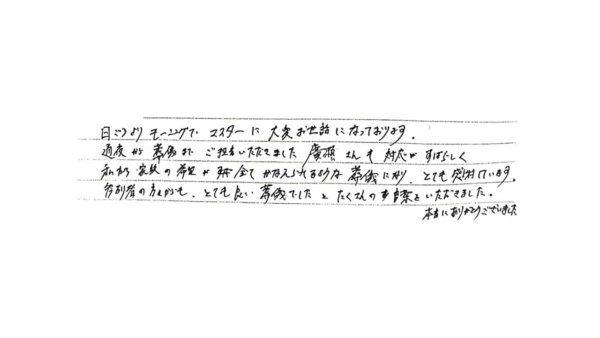 日ごろより モーニングで マスターに 大変お世話になっております。
通夜から 葬儀まで ご担当いただきました 廣瀬 さんも 対応が すばらしく
私たち 家族の 希望が 全て かなえられるような 葬儀になり、とても 感謝しています。
参列者の方々からも、とても良い 葬儀でしたと たくさんのお言葉を いただきました。
本当にありがとうございました